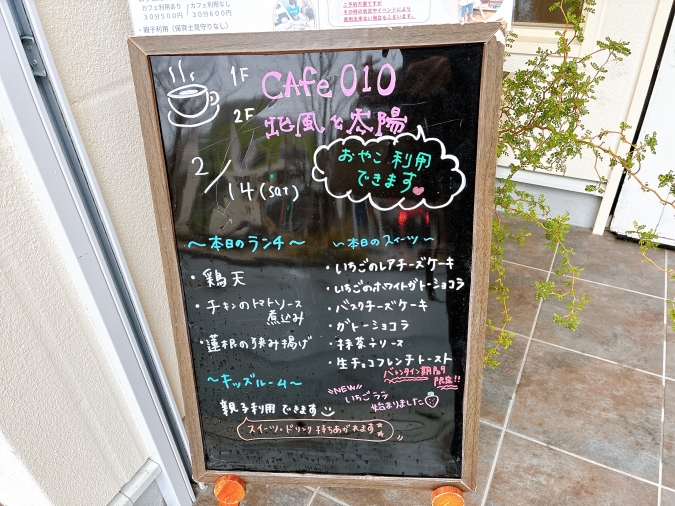 カフェ利用あり
30分500円
カフェ利用なし
30分600円
・親子利用(保育士見守りなし)
ご予約不要ですが
その時の状況やイベントにより
使用出来ない場合もございます。
1F CAFe 010
2F 北風と太陽
おやこ利用
できます
2/14(sat)
〜本日のランチ〜
・鶏天
・チキンのトマトソース
煮込み
・蓮根の挟み揚げ
〜キッズルーム〜
親子利用できます
スイーツ・ドリンク持ちあがれます
〜本日のスイーツ〜
・いちごのレアチーズケーキ
・いちごのホワイトガトーショコラ
・バスクチーズケーキ
・ガトーショコラ
・抹茶テリーヌ
・生チョコフレンチトースト
バレンタイン期間
限定!!
NEW
いちごラテ
始まりました